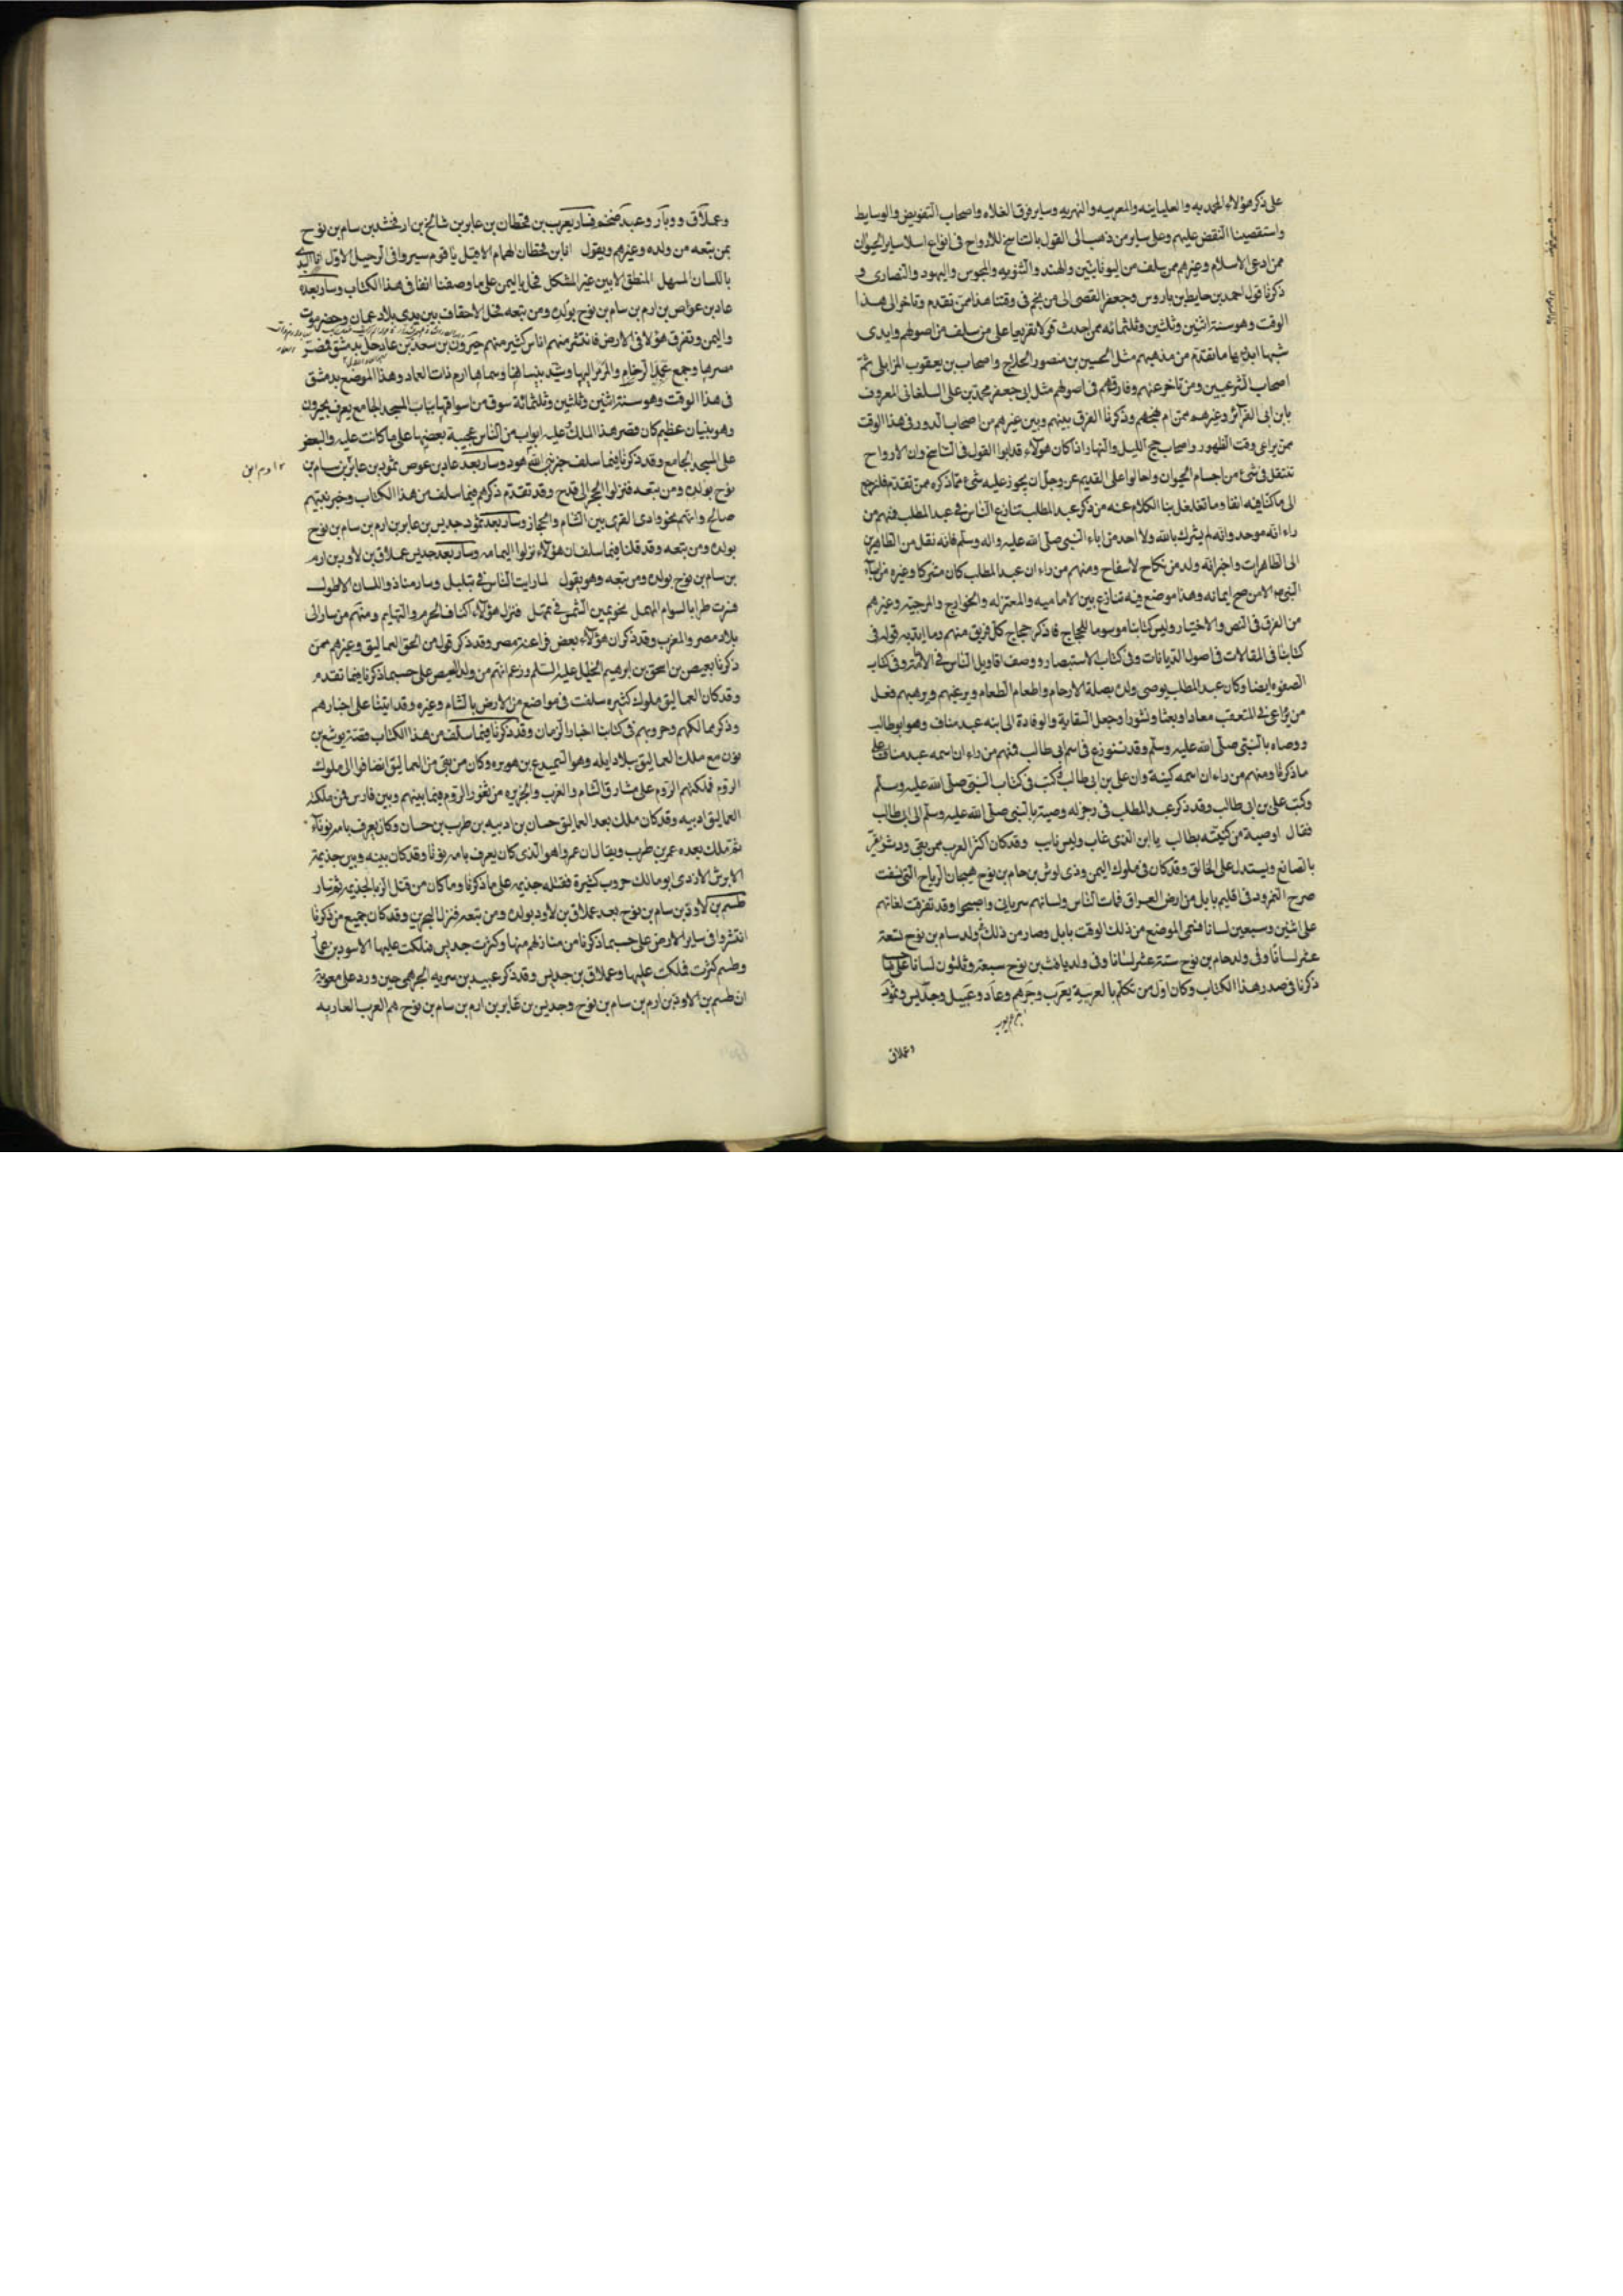 على ذكر هؤلاء المحمديه والعلياينه والمعربيه والنهريه وساير فرق الغلاة واصحاب التفويض والوسايط
واستقصينا النقض عليهم وعلى ساير من ذهب الى القول بالتناسخ للارواح فى انواع اسلا ساير الحيوان
ممن ادعى الاسلام وغيرهم ممن سلف من اليونانيين والهند والثنويه والمجوس واليهود والنصارى و
ذكرنا قول احمد بن حايط بن باروس وجعفر القصى الى من نجم فى وقتنا هذا ممن تقدم وتاخر الى هذا
الوقت وهو سنة اثنين وثلثين وثلثمائه ممن احدث قولا بفريعا على من سلف من اصولهم وايدى
شبها ايد بها ما تقدم من مذهبهم مثل الحسين بن منصور الحلاج واصحاب بن يعقوب المزايلى ثم
اصحاب الشرعيين ومن تاخر عنهم وفارقهم فى اصولهم مثل ابى جعفر محمد بن على السلغانى المعروف
بابن ابى القرائر وغيرهم ممن ام نهجهم وذكرنا الفرق بينهم وبين غيرهم من اصحاب الدور فى هذا الوقت
ممن يراعى وقت الظهور واصحاب حجج الليل والنهار اذا كان هؤلاء قد ابوا القول فى التناسخ وان الارواح
تنتقل فى شئ من اجسام الحيوان واحالوا على القديم عز وجل ان يجوز عليه شئ مما ذكره ممن تقدم فلنرجع
الى ما كنا فيه انفا وما تغلغل بنا الكلام عنه من ذكر عبد المطلب تنازع الناس فى عبد المطلب فمنهم من
راء انه موحد وانه لم يشرك بالله ولا احد من اباء النبى صلى الله عليه واله وسلم فانه نقل من الطاهرين
الى الطاهرات واخبر انه ولد من نكاح لا سفاح ومنهم من راء ان عبد المطلب كان مشركا وغيره من اباء
النبى الا من صح ايمانه وهذا موضع فيه تنازع بين الاماميه والمعتزله والخوارج والمرجئه وغيرهم
من الفرق فى النص والاختيار وليس كتابنا موسوما للحجاج فاذكر حجاج كل فريق منهم وما ايد به قوله فى
كتابنا فى المقالات فى اصول الديانات وفى كتاب الاستبصار ووصف اقاويل الناس فى الامامة وفى كتاب
الصفوه ايضا وكان عبد المطلب يوصى ولده بصلة الارحام واطعام الطعام ويرغبهم ويرهبهم فعل
من يراعى فى المتعقب معادا وبعثا ونشورا وجعل السقاية والوفادة الى ابنه عبد مناف وهو ابو طالب
ووصاه بالنبى صلى الله عليه وسلم وقد تنوزع فى اسم ابى طالب فمنهم من راء ان اسمه عبد مناف على
ما ذكرنا ومنهم من راء ان اسمه كنيته وان على بن ابى طالب كتب فى كتاب النبى صلى الله عليه وسلم
وكتب على بن ابى طالب وقد ذكر عبد المطلب فى رجز له وصيته بالنبى صلى الله عليه وسلم الى ابى طالب
فقال اوصيت من كنيته بطالب يا ابن الذى غاب وليس نايب وقد كان اكثر العرب ممن بقى ودثر يقر
بالصانع ويستدل على الخالق وقد كان فى ملوك اليمن وذى لوش بن حام بن نوح هيجان الرياح التى نسفت
صرح النمرود فى اقليم بابل من ارض العراق فبات الناس ولسانهم سريانى واصبحوا وقد تفرقت لغاتهم
على اثنين وسبعين لسانا فسمى الموضع من ذلك الوقت بابل وصار من ذلك فى ولد سام بن نوح تسعة
عشر لسانا وفى ولد حام بن نوح ستة عشر لسانا وفى ولد يافث بن نوح سبعة وثلثون لسانا على ما
ذكرنا فى صدر هذا الكتاب وكان اول من تكلم بالعربية يعرب وجرهم وعاد وعبيل وجديس وثمود
وعملاق
وعملاق ووبار وعبد ضخم فسار يعرب بن قحطان بن عابر بن شالخ بن ارفخشد بن سام بن نوح
بمن تبعه من ولده وغيرهم ويقول انا بن قحطان الهمام الاقبل يا قوم سيروا فى الرحيل الاول انا البدى
باللسان المسهل المنطق الابين غير المشكل فحل باليمن على ما وصفنا انفا فى هذا الكتاب وسار بعده
عاد بن عواص بن ارم بن سام بن نوح بولده ومن تبعه فحل الاحقاف بين يدى بلاد عمان وحضرموت
واليمن وتفرق هؤلا فى الارض فانتشر منهم اناس كثير منهم جيرون بن سعد بن عاد حل بدمشق فمصر
مصرها وجمع عمد الرخام والمرمر اليها وشيد بنيانها وسماها ارم ذات العماد وهذا الموضع بدمشق
فى هذا الوقت وهو سنة اثنين وثلثين وثلثمائة سوق من اسواقها بباب المسجد الجامع يعرف بجيرون
وهو بنيان عظيم كان قصر هذا الملك عليه ابواب من النحاس عجيبة بعضها على ما كانت عليه والبعض
على المسجد الجامع وقد ذكرنا فيما سلف خبر نبى الله هود وسار بعد عاد بن عوص ثمود بن عابر بن سام بن
ارم ابن
نوح بولده ومن تبعه فنزلوا الحجر الى قدح وقد تقدم ذكرهم فيما سلف من هذا الكتاب وخبر نبيهم
صالح وانهم نحو وادى القرى بين الشام والحجاز وسار بعد ثمود جديس بن عابر بن ارم بن سام بن نوح
بولده ومن تبعه وقد قلنا فيما سلف ان هؤلاء نزلوا اليمامه وسار بعد جديس عملاق بن لاود بن ارم
بن سام بن نوح بولده ومن تبعه وهو يقول لما رايت الناس فى تبلبل وسار منا ذو اللسان الاطول
فسرت طرا بالسوام المهمل نحو يمين الشمس فى تمهل فنزل هؤلاء اكناف الحرم والتهايم ومنهم من سار الى
بلاد مصر والمغرب وقد ذكر ان هؤلاء بعض فراعنة مصر وقد ذكر قول من الحق العماليق وغيرهم ممن
ذكرنا بعيص بن اسحق بن ابرهيم الخليل عليه السلم وزعم انهم من ولد العيص على حسب ما ذكرنا فيما تقدم
وقد كان العماليق ملوك كثيره سلفت فى مواضع من الارض بالشام وغيره وقد اتينا على اخبارهم
وذكر ممالكهم وحروبهم فى كتابنا اخبار الزمان وقد ذكرنا فيما سلف من هذا الكتاب قصة يوشع بن
نون مع ملك العماليق ببلاد ايله وهو السميدع بن هوبره وكان من بقى من العماليق انضافوا الى ملوك
الروم فملكتهم الروم على مشارق الشام والغرب والجزيره من ثغور الروم فيما بينهم وبين فارس فمن ملك
العماليق ادبيه وقد كان ملك بعد العماليق حسان بن ادبيه بن طرب بن حسان وكان يعرف بامه نوناء
ثم ملك بعده عمر بن طرب ويقال ان عمروا هو الذى كان يعرف بامه نونا وقد كان بينه وبين جذيمة
الابرش الازدى ابو مالك حروب كثيرة فقتله جذيمه على ما ذكرنا وما كان من قتل الزبا لجذيمه ثم سار
طسم بن لاوذ بن سام بن نوح بعد عملاق بن لاود بولده ومن تبعه فنزل البحرين وقد كان جميع من ذكرنا
انتشروا فى ساير الارض على حسب ما ذكرنا من منازلهم منها وكثرت جديس فملكت عليها الاسود بن عاد
وطسم كثرت فملكت عليها وعملاق بن جديس وقد ذكر عبيد بن سريه الجرهمى حين ورد على معوية
ان طسم بن لاوذ بن ارم بن سام بن نوح وجديس بن عابر بن ارم بن سام بن نوح هم العرب العاربه